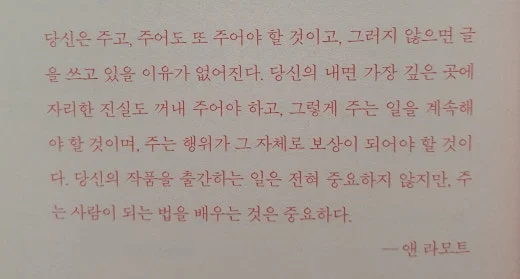 당신은 주고, 주어도 또 주어야 할 것이고, 그러지 않으면 글
을 쓰고 있을 이유가 없어진다. 당신의 내면 가장 깊은 곳에
자리한 진실도 꺼내 주어야 하고, 그렇게 주는 일을 계속해
야 할 것이며, 주는 행위가 그 자체로 보상이 되어야 할 것이
다. 당신의 작품을 출간하는 일은 전혀 중요하지 않지만, 주
는 사람이 되는 법을 배우는 것은 중요하다.
— 앤 라모트